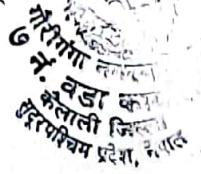 गौरीगंगा
७ नं. वडा
कैलाली
सुदूरपश्चिम प्रदेश, नेपाल